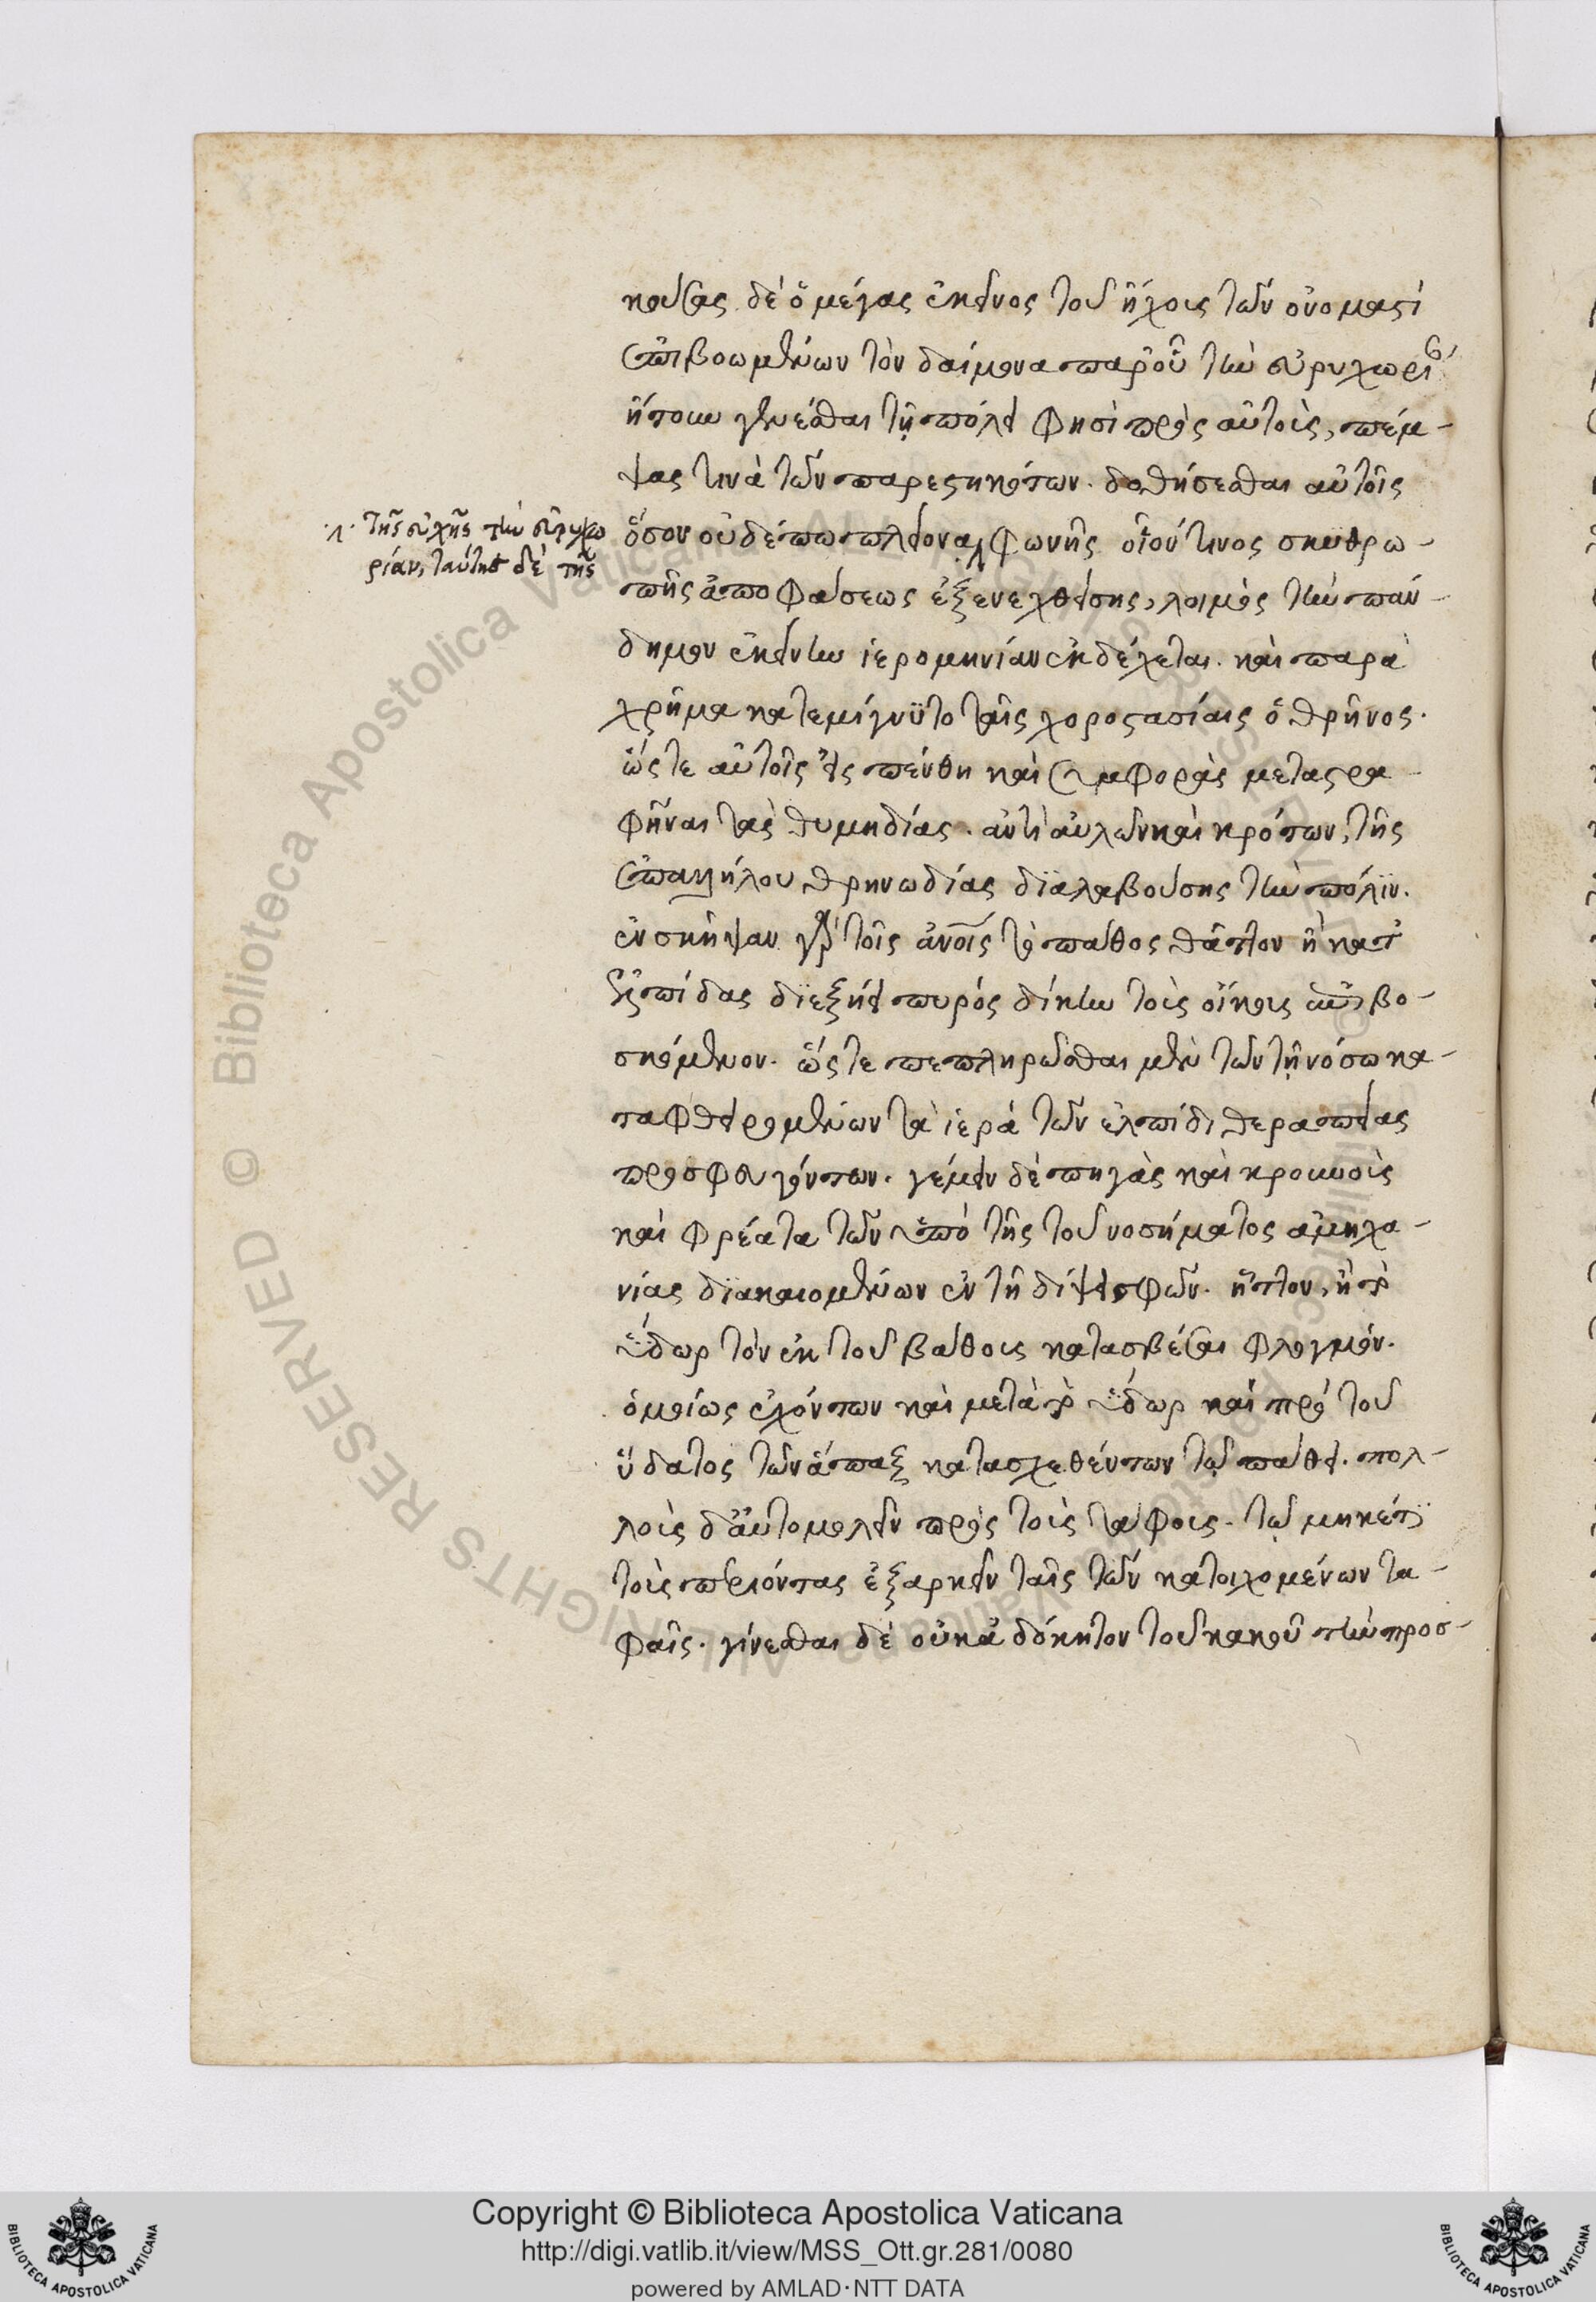 κούσας δὲ ὁ μέγας ἐκεῖνος τοῦ ἤχους τῶν ὀνομαστὶ
ἐπιβοωμένων τὸν δαίμονα παρ' οὗ τὴν εὐρυχωρί
ᾔτουν γενέσθαι τῇ πόλει φησὶ πρὸς αὐτοὺς, πέμ-
ψας τινὰ τῶν παρεστηκότων. δοθήσεσθαι αὐτοῖς
·/· τῆς εὐχῆς τὴν εὐρυχω
ρίαν, ταύτης δὲ τῆς
ὅσον οὐδέπω πλείονα ./. φωνῆς οἷόν τινος σκυθρω-
πῆς ἀποφάσεως ἐξενεχθείσης, λοιμὸς τὴν πάν-
δημον ἐκείνην ἱερομηνίαν ἐκδέχεται. καὶ παρὰ
χρῆμα κατεμίγνυτο ταῖς χοροστασίαις ὁ θρῆνος.
ὥστε αὐτοῖς εἰς πένθη καὶ συμφορὰς μεταστρα
φῆναι τὰς θυμηδίας. ἀντὶ αὐλῶν καὶ κρότων, τῆς
ἐπαλλήλου θρηνωδίας διαλαβούσης τὴν πόλϊν.
ἐνσκῆψαν γὰρ τοῖς ἀνοῖς τὸ πάθος θᾶττον ἢ κατ'
ἐλπίδας διεξήει πυρὸς δίκην τοὺς οἴκους ἐπιβο-
σκόμενον. ὥστε πεπληρῶσθαι μὲν τῶν τῇ νόσω κα-
ταφθειρομένων τὰ ἱερὰ τῶν ἐλπίδι θεραπείας
προσφευγόντων. γέμειν δὲ πηγὰς καὶ κρουνοὺς
καὶ φρέατα τῶν ὑπὸ τῆς τοῦ νοσήματος ἀμηχα-
νίας διακαιομένων ἐν τῇ δίψει σφῶν. ἧττον, ἢ τὸ
ὕδωρ τὸν ἐκ τοῦ βάθους κατασβέσαι φλογμόν.
ὁμοίως ἐχόντων καὶ μετὰ τὸ ὕδωρ καὶ πρὸ τοῦ
ὕδατος τῶν ἅπαξ κατασχεθέντων τῷ πάθει. πολ-
λοὺς δ' αὐτομολεῖν πρὸς τοὺς τάφους. τῷ μηκέτι
τοὺς περιόντας ἐξαρκεῖν ταῖς τῶν κατοιχομένων τα-
φαῖς. γίνεσθαι δὲ οὐκ ἀδόκητον τοῦ κακοῦ τὴν προσ-
Copyright © Biblioteca Apostolica Vaticana
http://digi.vatlib.it/view/MSS_Ott.gr.281/0080
powered by AMLAD·NTT DATA